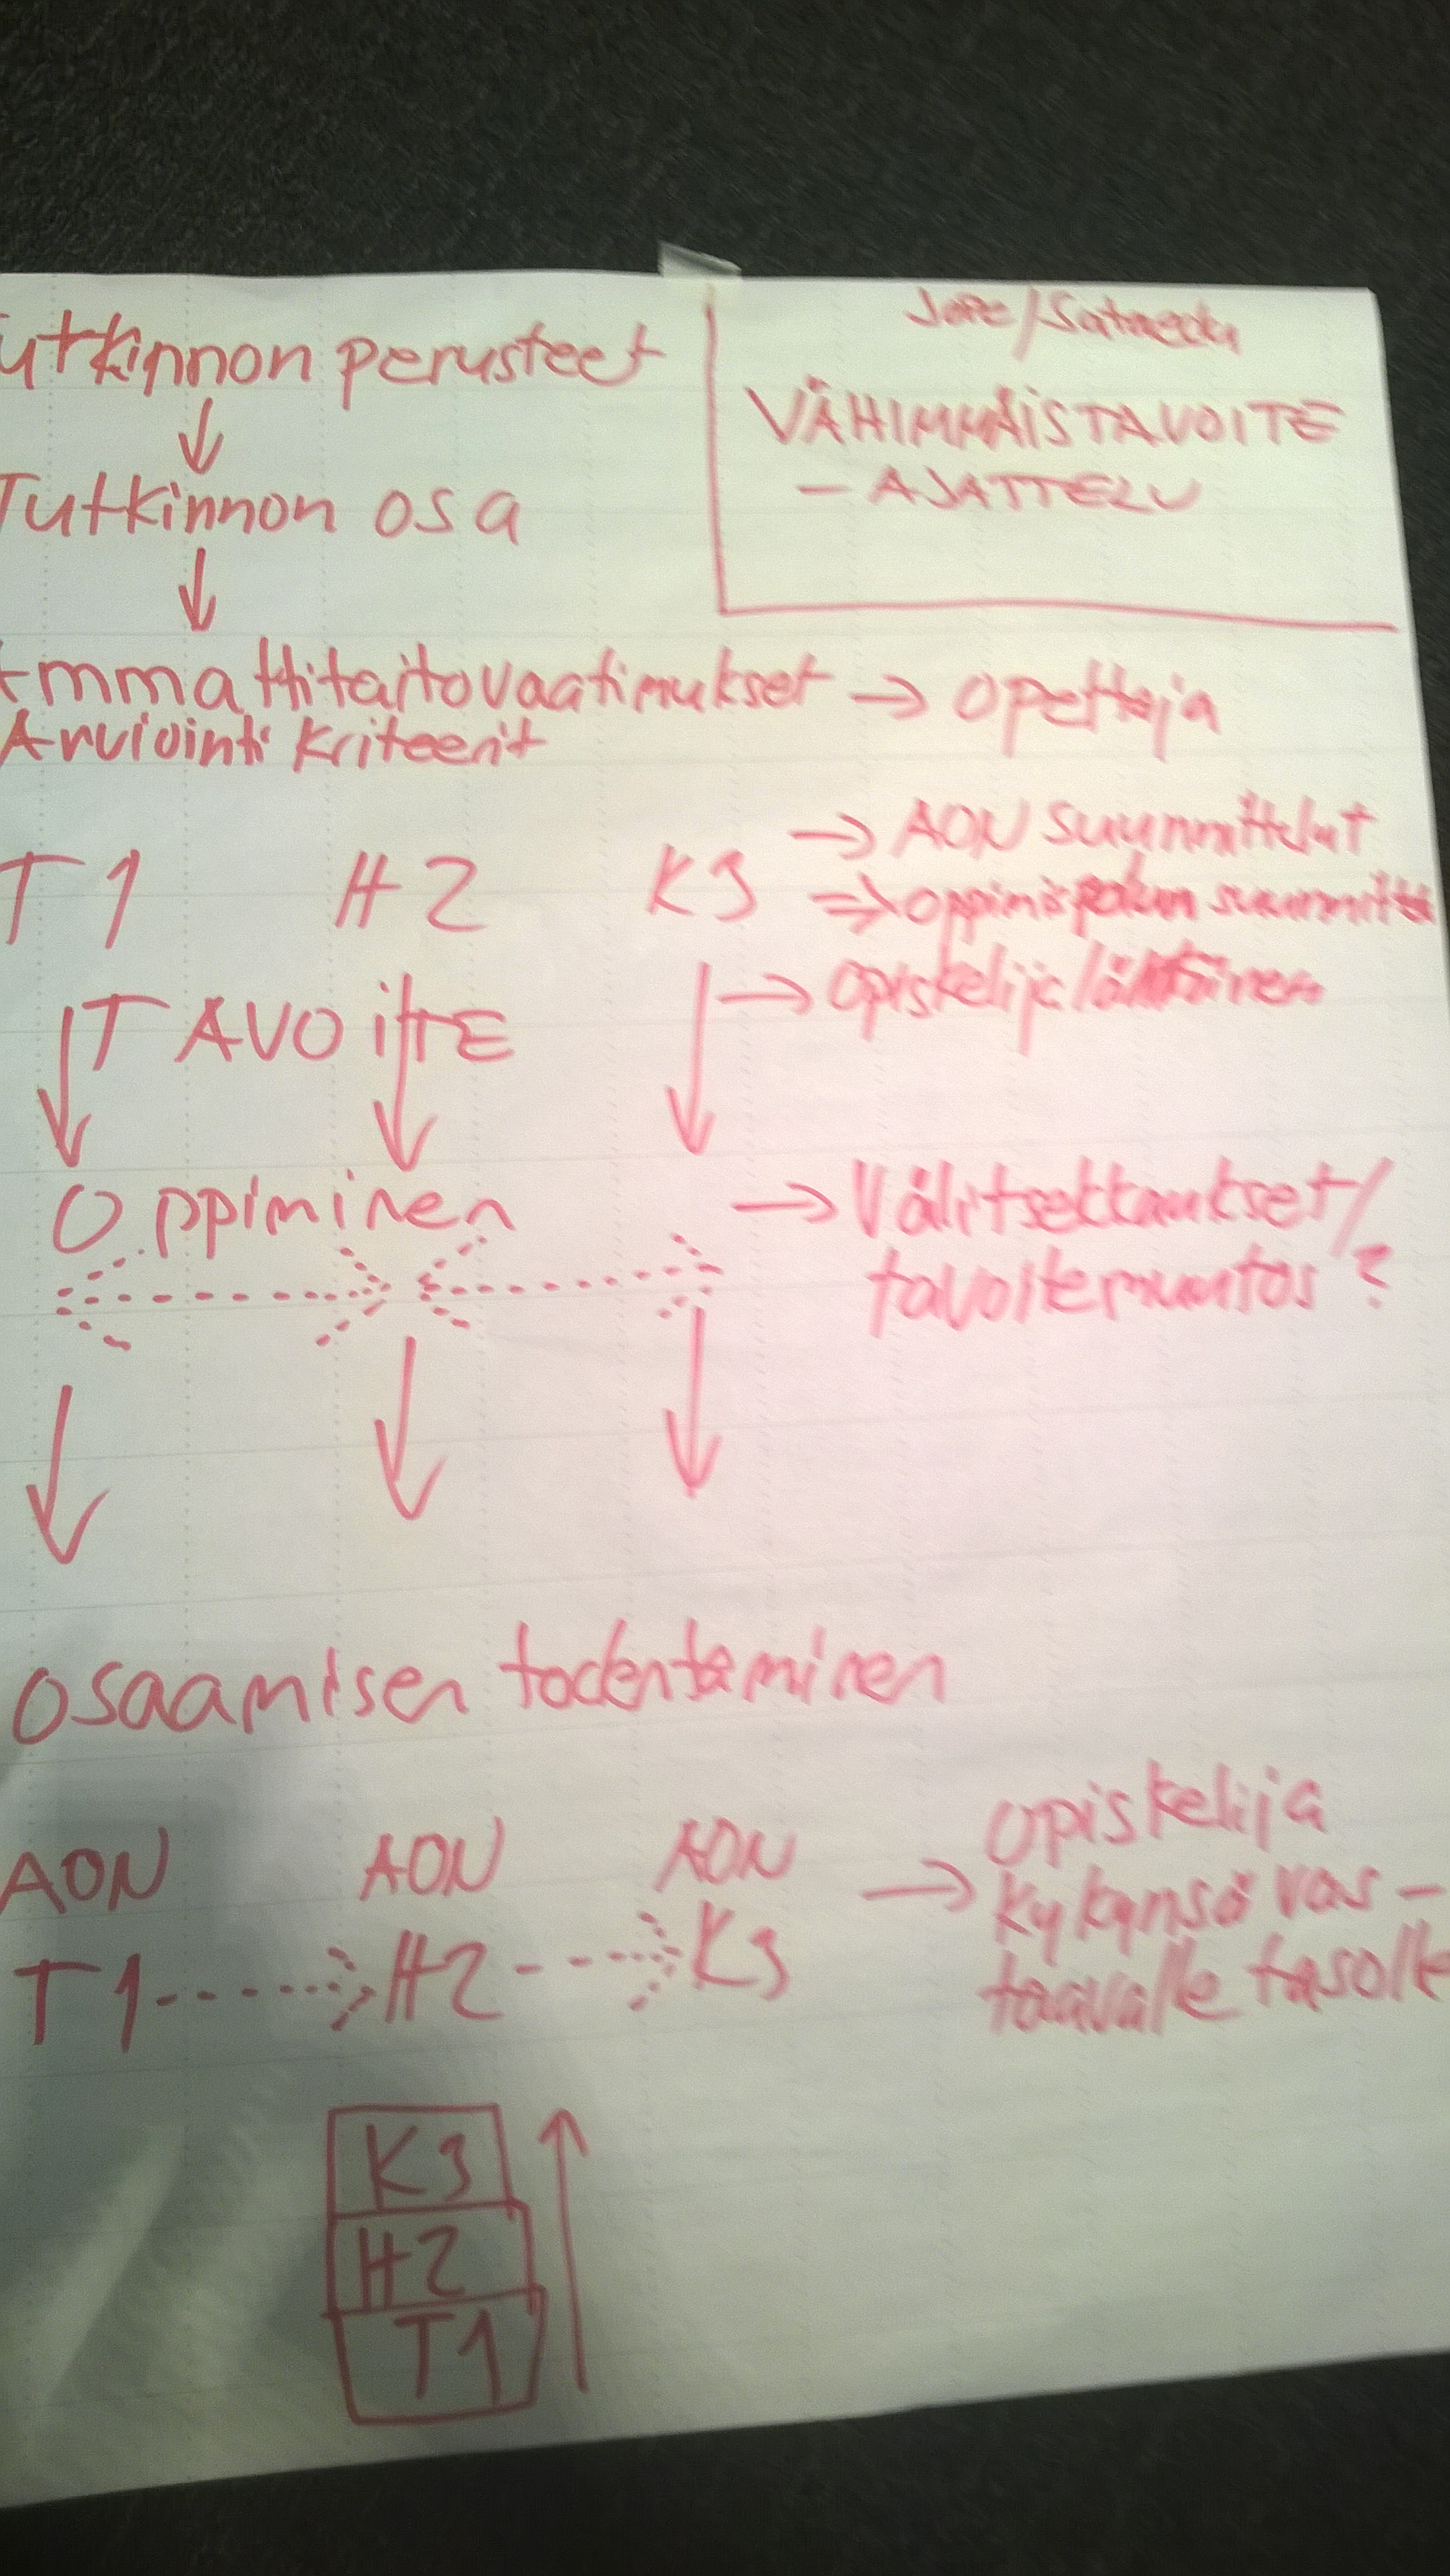 utkinnon perusteet
Tutkinnon osa
Jore/Sataedu
VÄHIMMÄISTAVOITE
- AJATTELU
Ammattitaitovaatimukset → opettaja
Arviointi kriteerit
T1 H2 K3
→ AON suunnittelut
⇒ oppimispolun
→ opiskelija
TAVOITE
Oppiminen
→ Välitsekkaukset/
tavoitemuutos?
Osaamisen todentaminen
AON AON AON
T1 H2 K3
→ opiskelija
kykynsä vas-
taavalle tasolle
K3
H2
T1